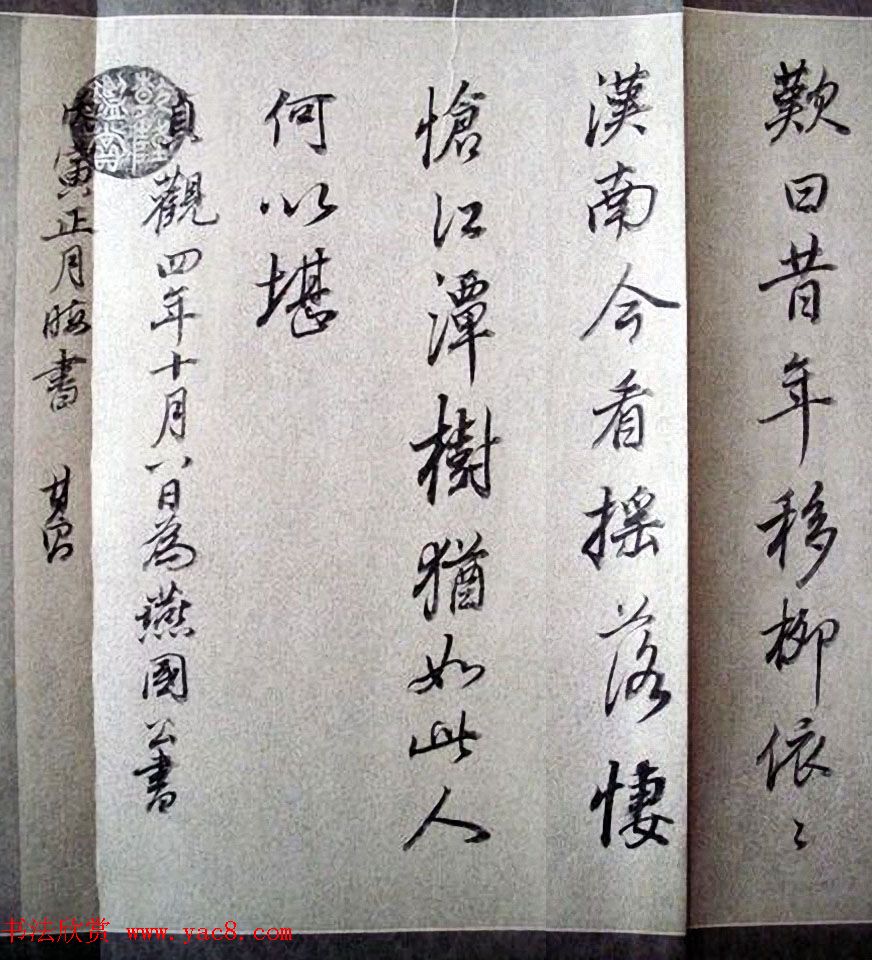 歎曰昔年移柳依〻
漢南今看摇落悽
愴江潭樹猶如此人
何以堪
貞觀四年十月八日為燕國公書
寅正月晦書 其昌
书法欣赏 www.yac8.com